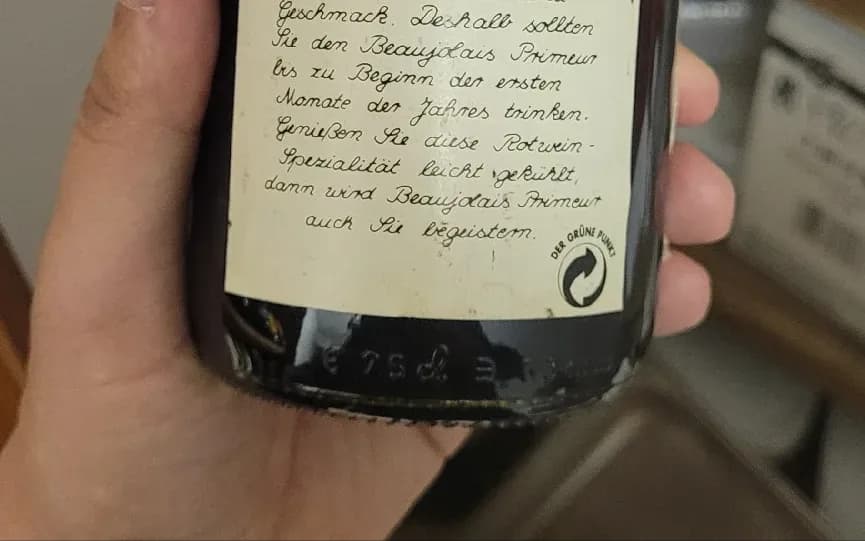 Geschmack. Deshalb sollten
Sie den Beaujolais Primeur
bis zu Beginn der ersten
Monate der Jahres trinken.
Genießen Sie diese Rotwein-
Spezialität leicht gekühlt,
dann wird Beaujolais Primeur
auch Sie begeistern.
DER GRÜNE PUNKT
75cl